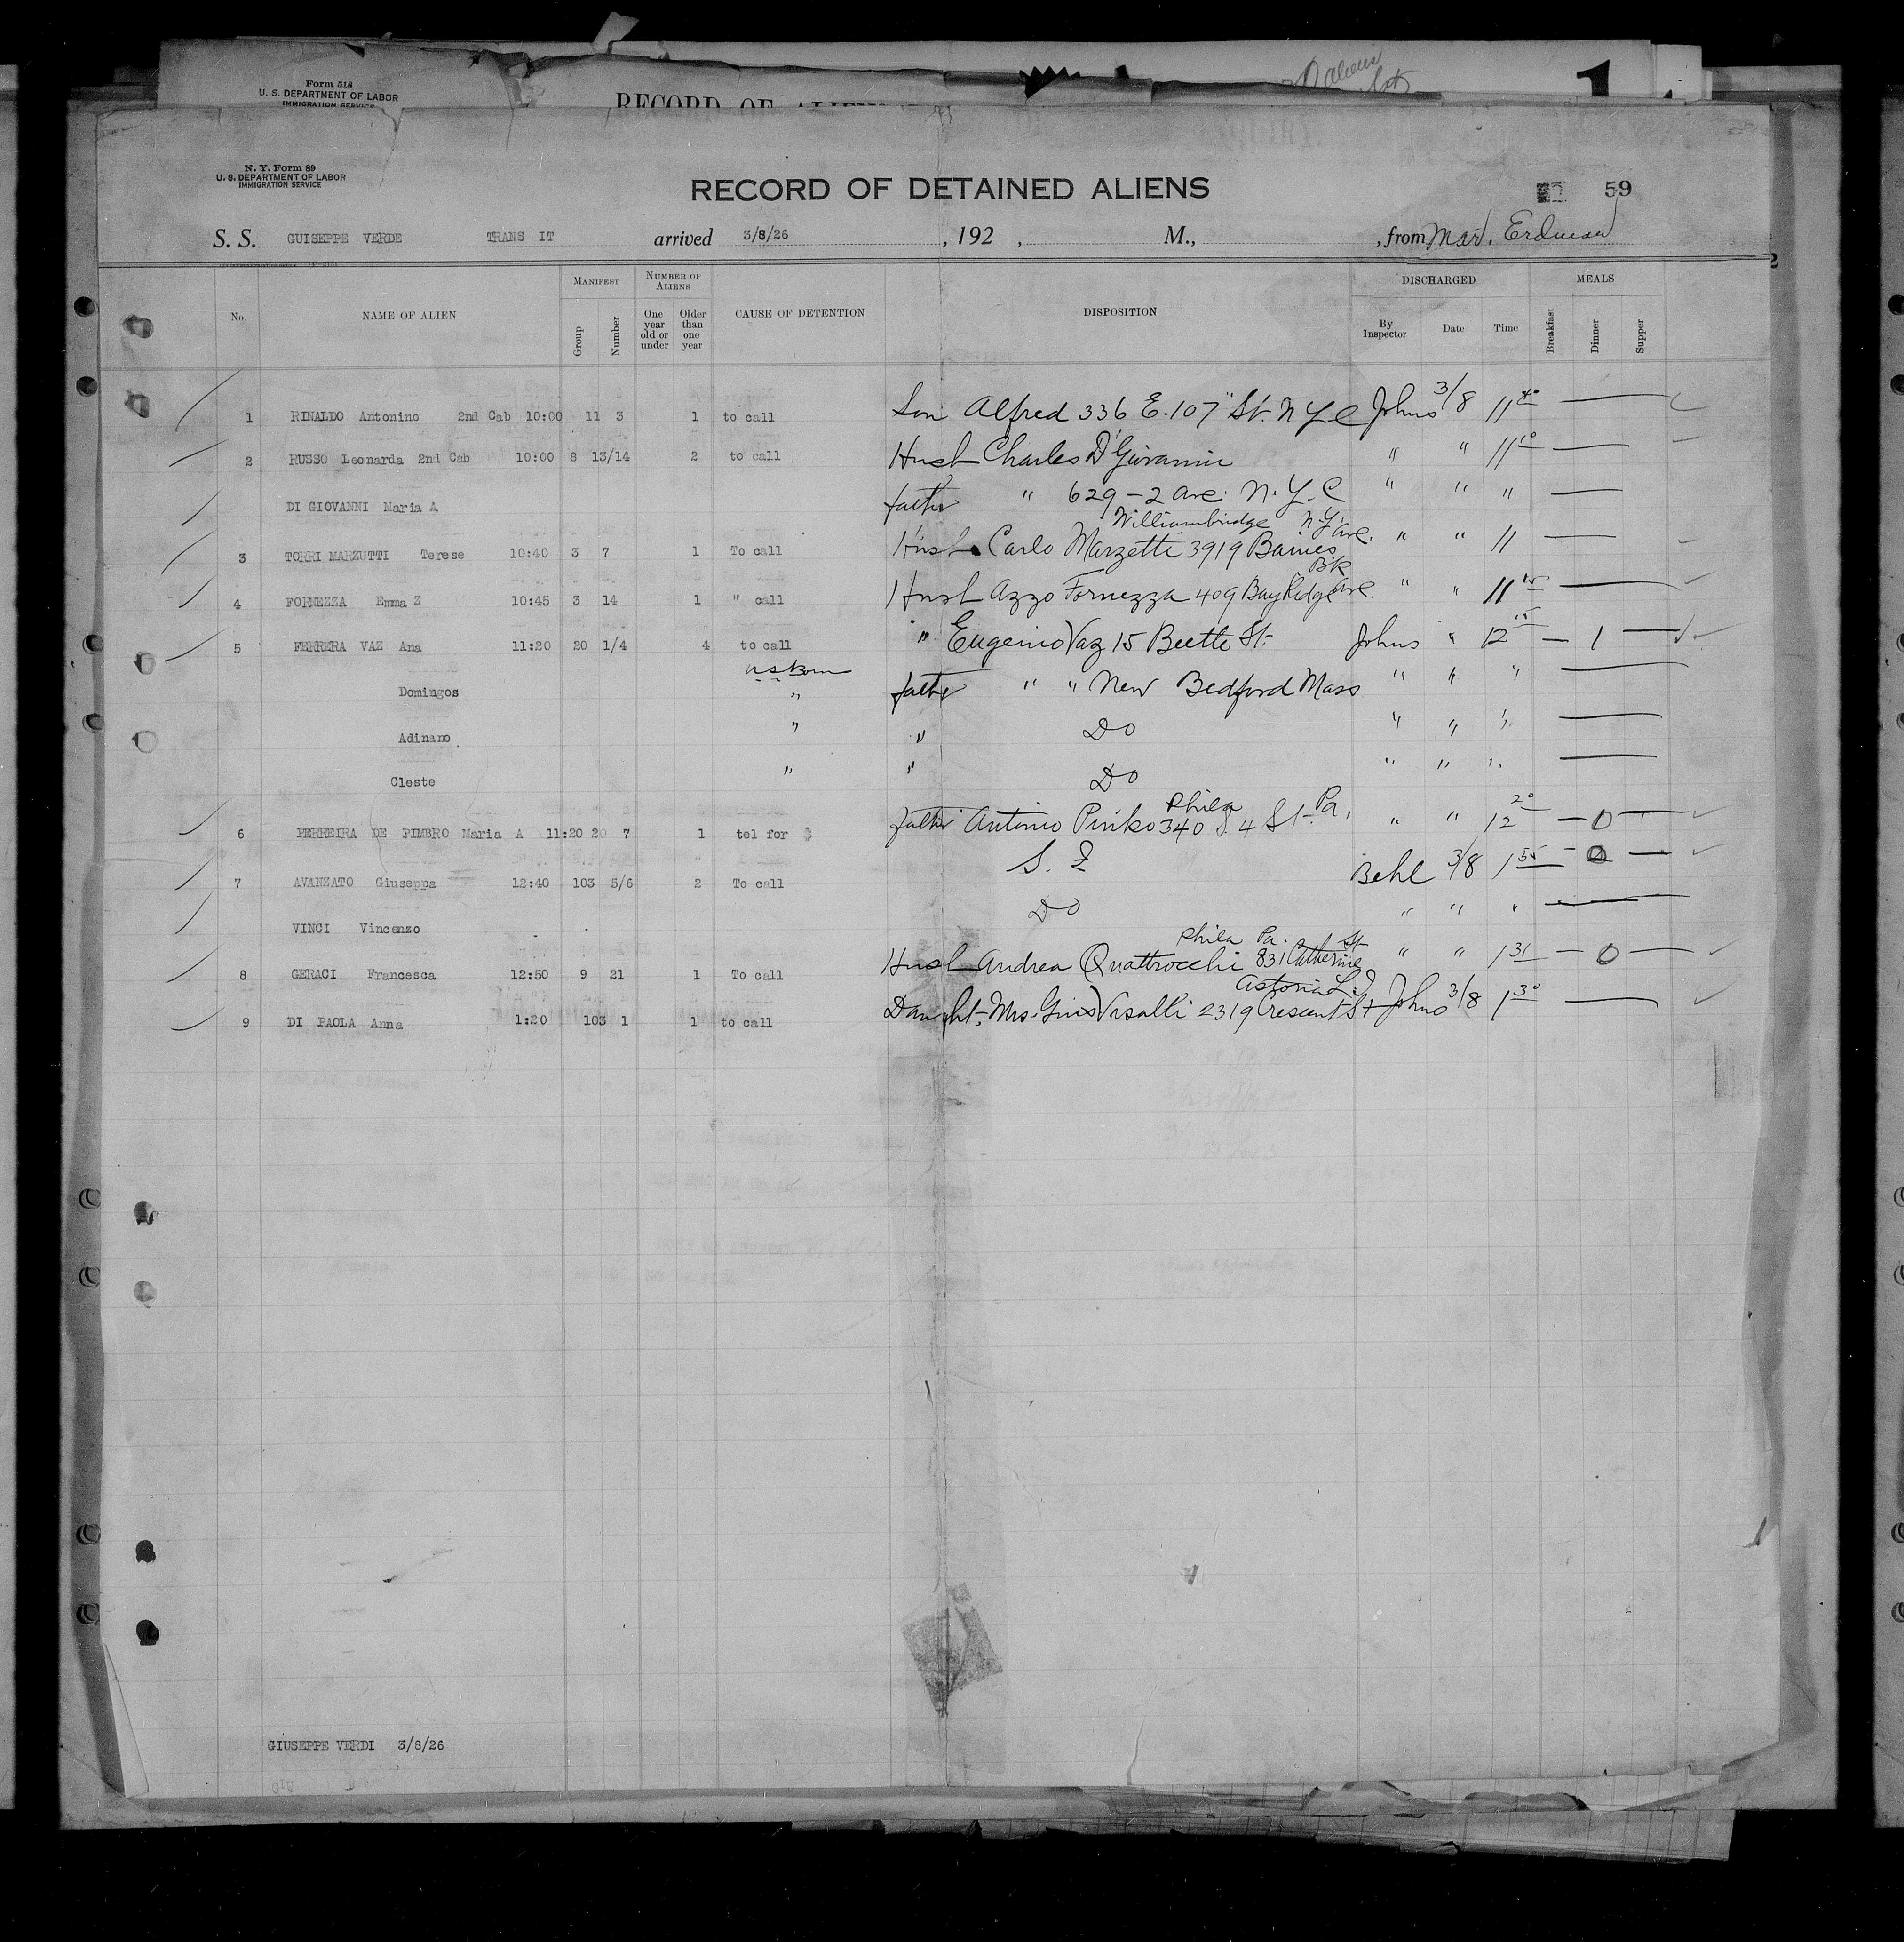 Form 518
U. S. DEPARTMENT OF LABOR
IMMIGRATION SERVICE
RECORD OF
N. Y. Form 89
U. S. DEPARTMENT OF LABOR
IMMIGRATION SERVICE
RECORD OF DETAINED ALIENS
59
S. S. GUISEPPE VERDE TRANS IT arrived 3/8/26 , 192 , M., , from Mar. Erdman
No. NAME OF ALIEN MANIFEST Group Number NUMBER OF ALIENS One year old or under Older than one year CAUSE OF DETENTION DISPOSITION DISCHARGED By Inspector Date Time MEALS Breakfast Dinner Supper
1 RINALDO Antonino 2nd Cab 10:00 11 3 1 to call Son Alfred 336 E. 107" St. N Y C Johns 3/8 11 40
2 RUSSO Leonarda 2nd Cab 10:00 8 13/14 2 to call Husb Charles D'Giovanni " " 11 10
DI GIOVANNI Maria A father " 629 - 2 Ave. N. Y. C " " "
Williamsbridge N.Y.
3 TORRI MARZUTTI Terese 10:40 3 7 1 To call Husb Carlo Marzetti 3919 Baines Ave. " " 11
Bk
4 FORNEZZA Emma Z 10:45 3 14 1 " call Husb Azzo Fornezza 409 Bay Ridge Ave. " " 11 15
5 FERRERA VAZ Ana 11:20 20 1/4 4 to call " Eugenio Vaz 15 Beetle St. Johns " 12 15 — 1 —
US Born
Domingos " father " " New Bedford Mass " " "
Adinano " " Do " " "
Cleste " " Do " " "
Phila Pa.
6 FERREIRA DE PIMBRO Maria A 11:20 20 7 1 tel for father Antonio Pinko 340 S. 4 St. " " 12 20 — 0 —
7 AVANZATO Giuseppa 12:40 103 5/6 2 To call S. I Behl 3/8 1 55 — 2 —
VINCI Vincenzo Do " " "
Phila Pa. St
8 GERACI Francesca 12:50 9 21 1 To call Husb Andrea Quattrocchi 831 Catherine " " 1 31 — 0 —
Astoria L.I
9 DI PAOLA Anna 1:20 103 1 1 to call Daught. Mrs. Visalli 2319 Crescent St Johns 3/8 1 30
GIUSEPPE VERDI 3/8/26